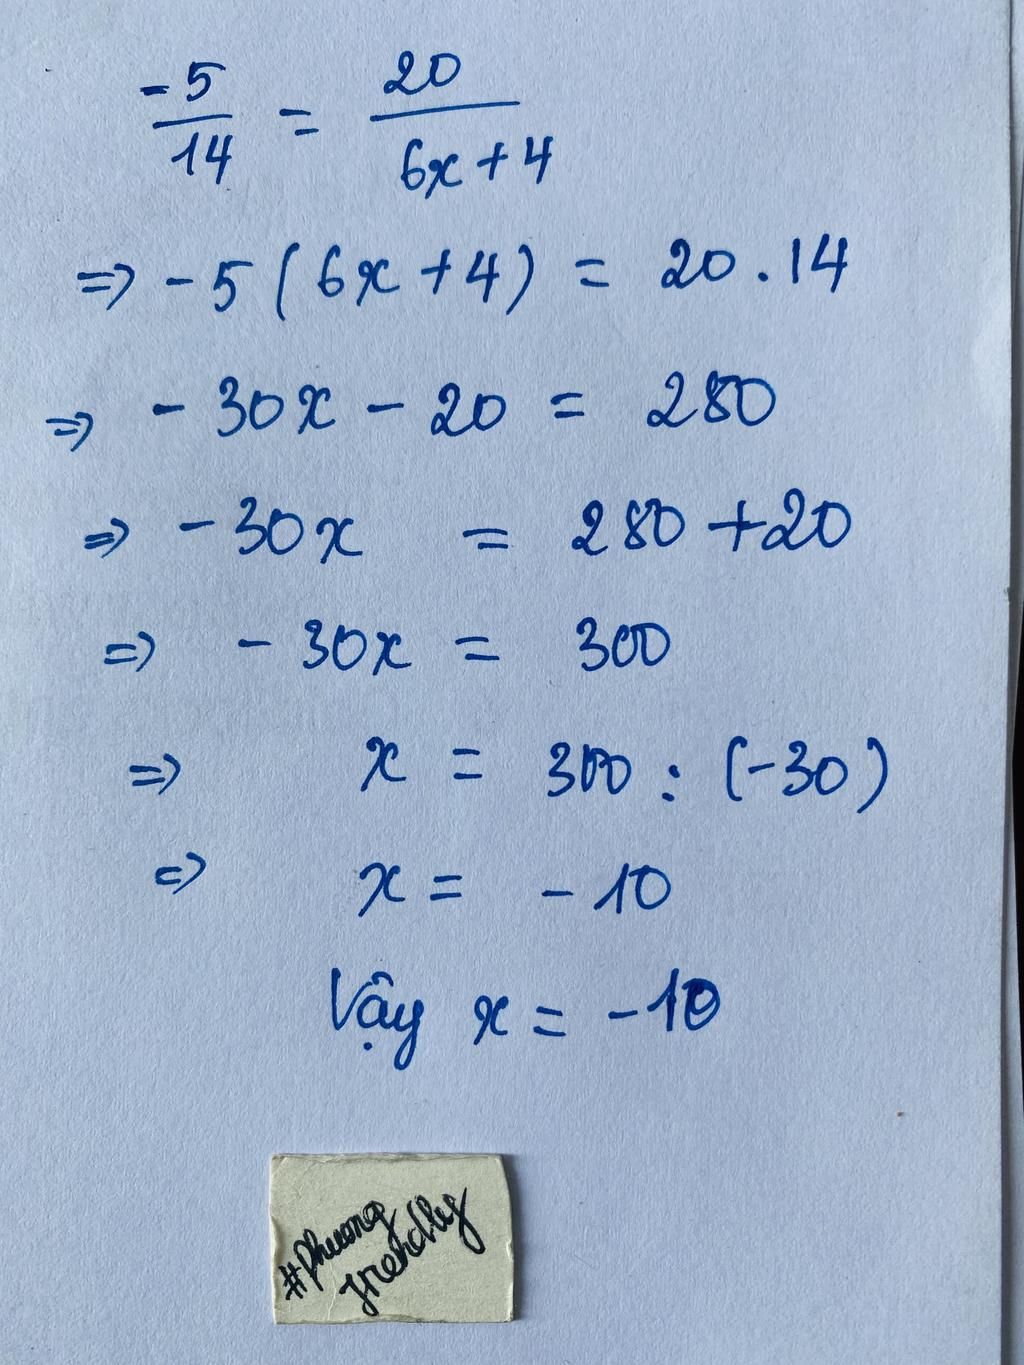 -5/14 = 20/6x+4
=> -5(6x+4) = 20.14
=> -30x - 20 = 280
=> -30x = 280+20
=> -30x = 300
=> x = 300 : (-30)
=> x = -10
Vậy x = -10
#phuong
friendly